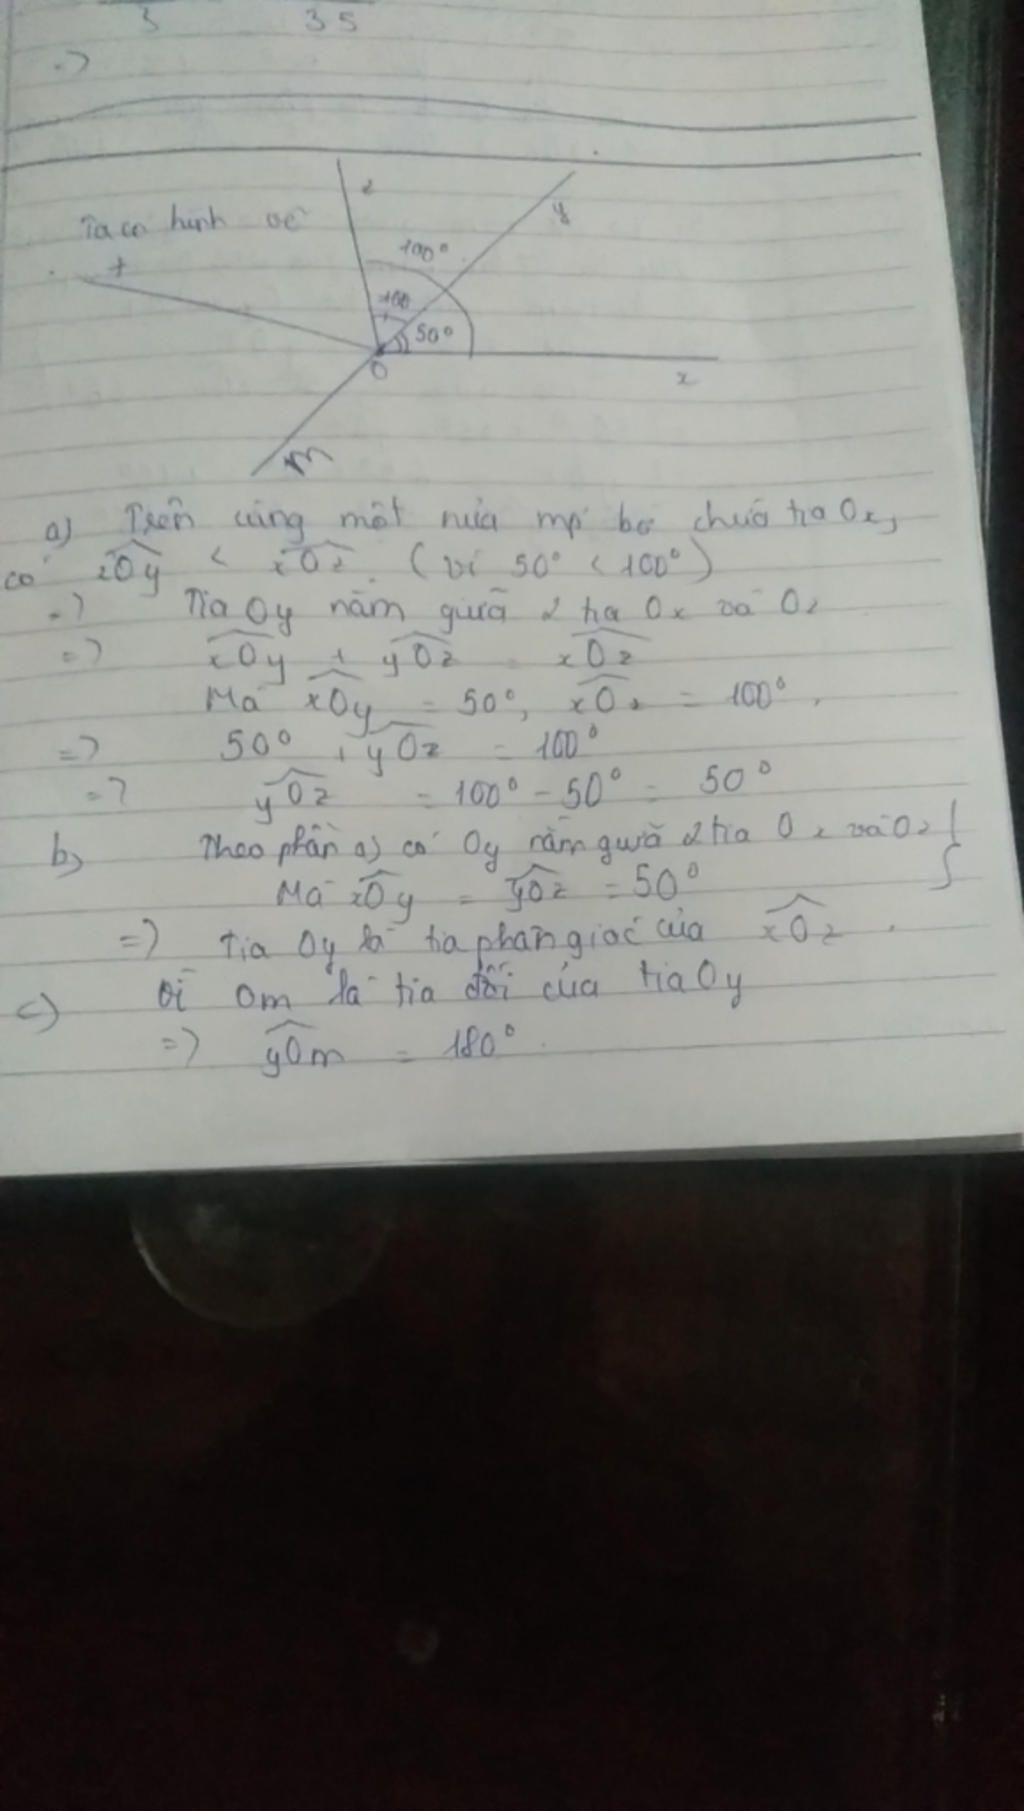 3 35
=>
Ta có hình vẽ
z
y
t
100°
100
50°
O
x
m
a) Trên cùng một nửa mp bờ chứa tia Ox,
có xOy < xOz (vì 50° < 100°)
=> Tia Oy nằm giữa 2 tia Ox và Oz
=> xOy + yOz = xOz
Mà xOy = 50°, xOz = 100°,
=> 50° + yOz = 100°
=> yOz = 100° - 50° = 50°
b) Theo phần a) có Oy nằm giữa 2 tia Ox và Oz }
Mà xOy = yOz = 50°
=> tia Oy là tia phân giác của xOz.
c) Vì Om là tia đối của tia Oy
=> yOm = 180°.